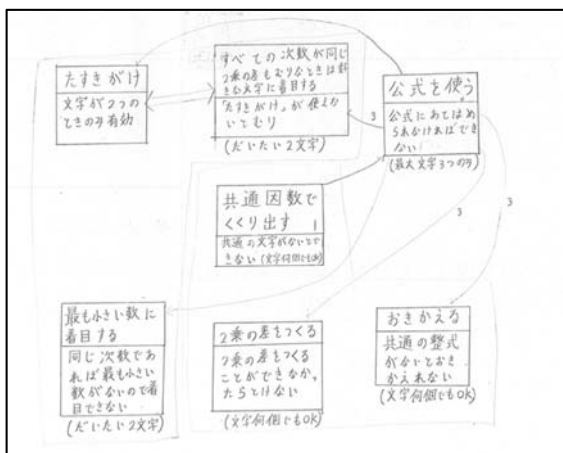 たすきがけ
文字が2つの
ときのみ有効
すべての次数が同じ
2乗の差もむりなときは好
きな文字に着目する
「たすきがけ」が使えな
いとむり
(だいたい2文字)
公式を使う
公式にあてはめ
られなければでき
ない
(最大文字3つのみ)
3
共通因数で
くくり出す 1
共通の文字がないとで
きない(文字何個でもok)
3
3
最も小さい数に
着目する
同じ次数であ
れば最も小さい
数がないので着
目できない
(だいたい2文字)
2乗の差をつくる
2乗の差をつくる
ことができなかっ
たらとけない
(文字何個でもOK)
おきかえる
共通の整式
がないとおき
かえれない
(文字何個でもOK)